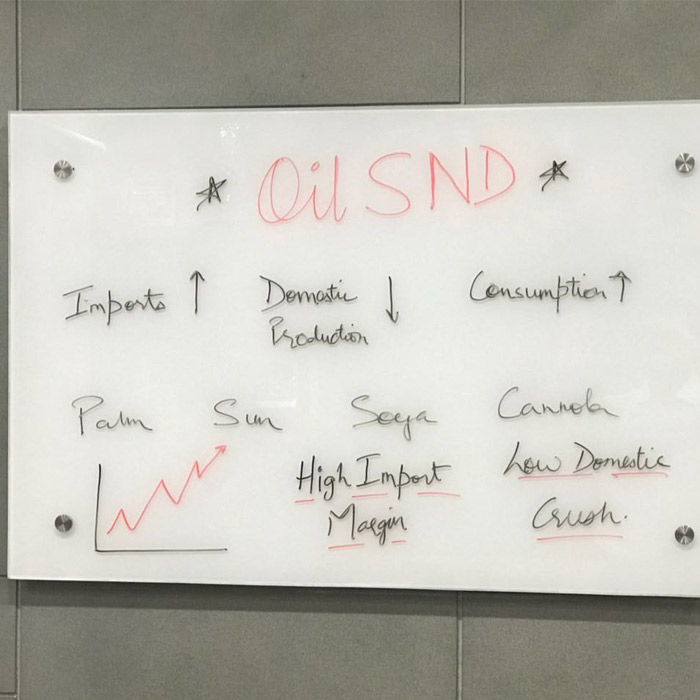 * Oil SND *
Imports ↑ Domestic ↓ Consumption ↑
Production
Palm Sun Soya Cannola
High Import Low Domestic
Margin Crush.